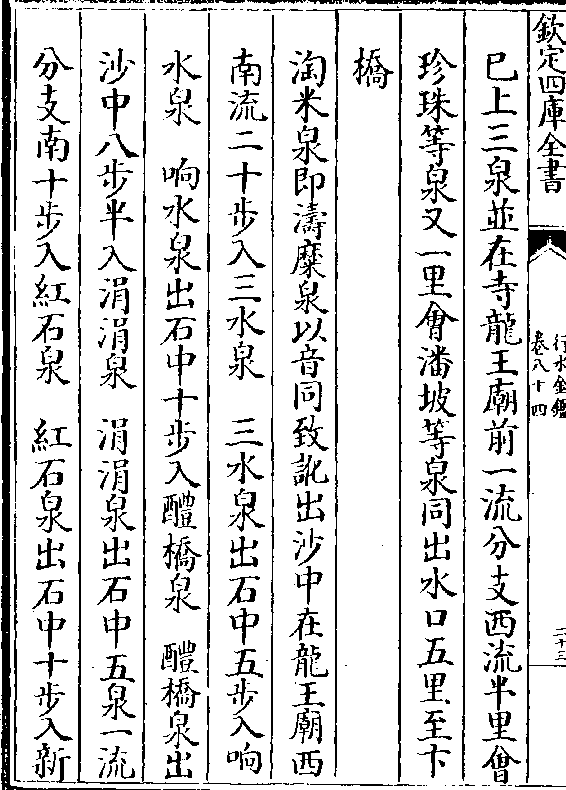 欽定四庫全書
行水金鑑
卷八十四
二十三
已上三泉並在寺龍王廟前一流分支西流半里會
珍珠等泉又一里會潘坡等泉同出水口五里至卞
橋
淘米泉即濤糜泉以音同致訛出沙中在龍王廟西
南流二十步入三水泉　三水泉出石中五步入响
水泉　响水泉出石中十步入醴橋泉　醴橋泉出
沙中八步半入涓涓泉　涓涓泉出石中五泉一流
分支南十步入紅石泉　紅石泉出石中十步入新